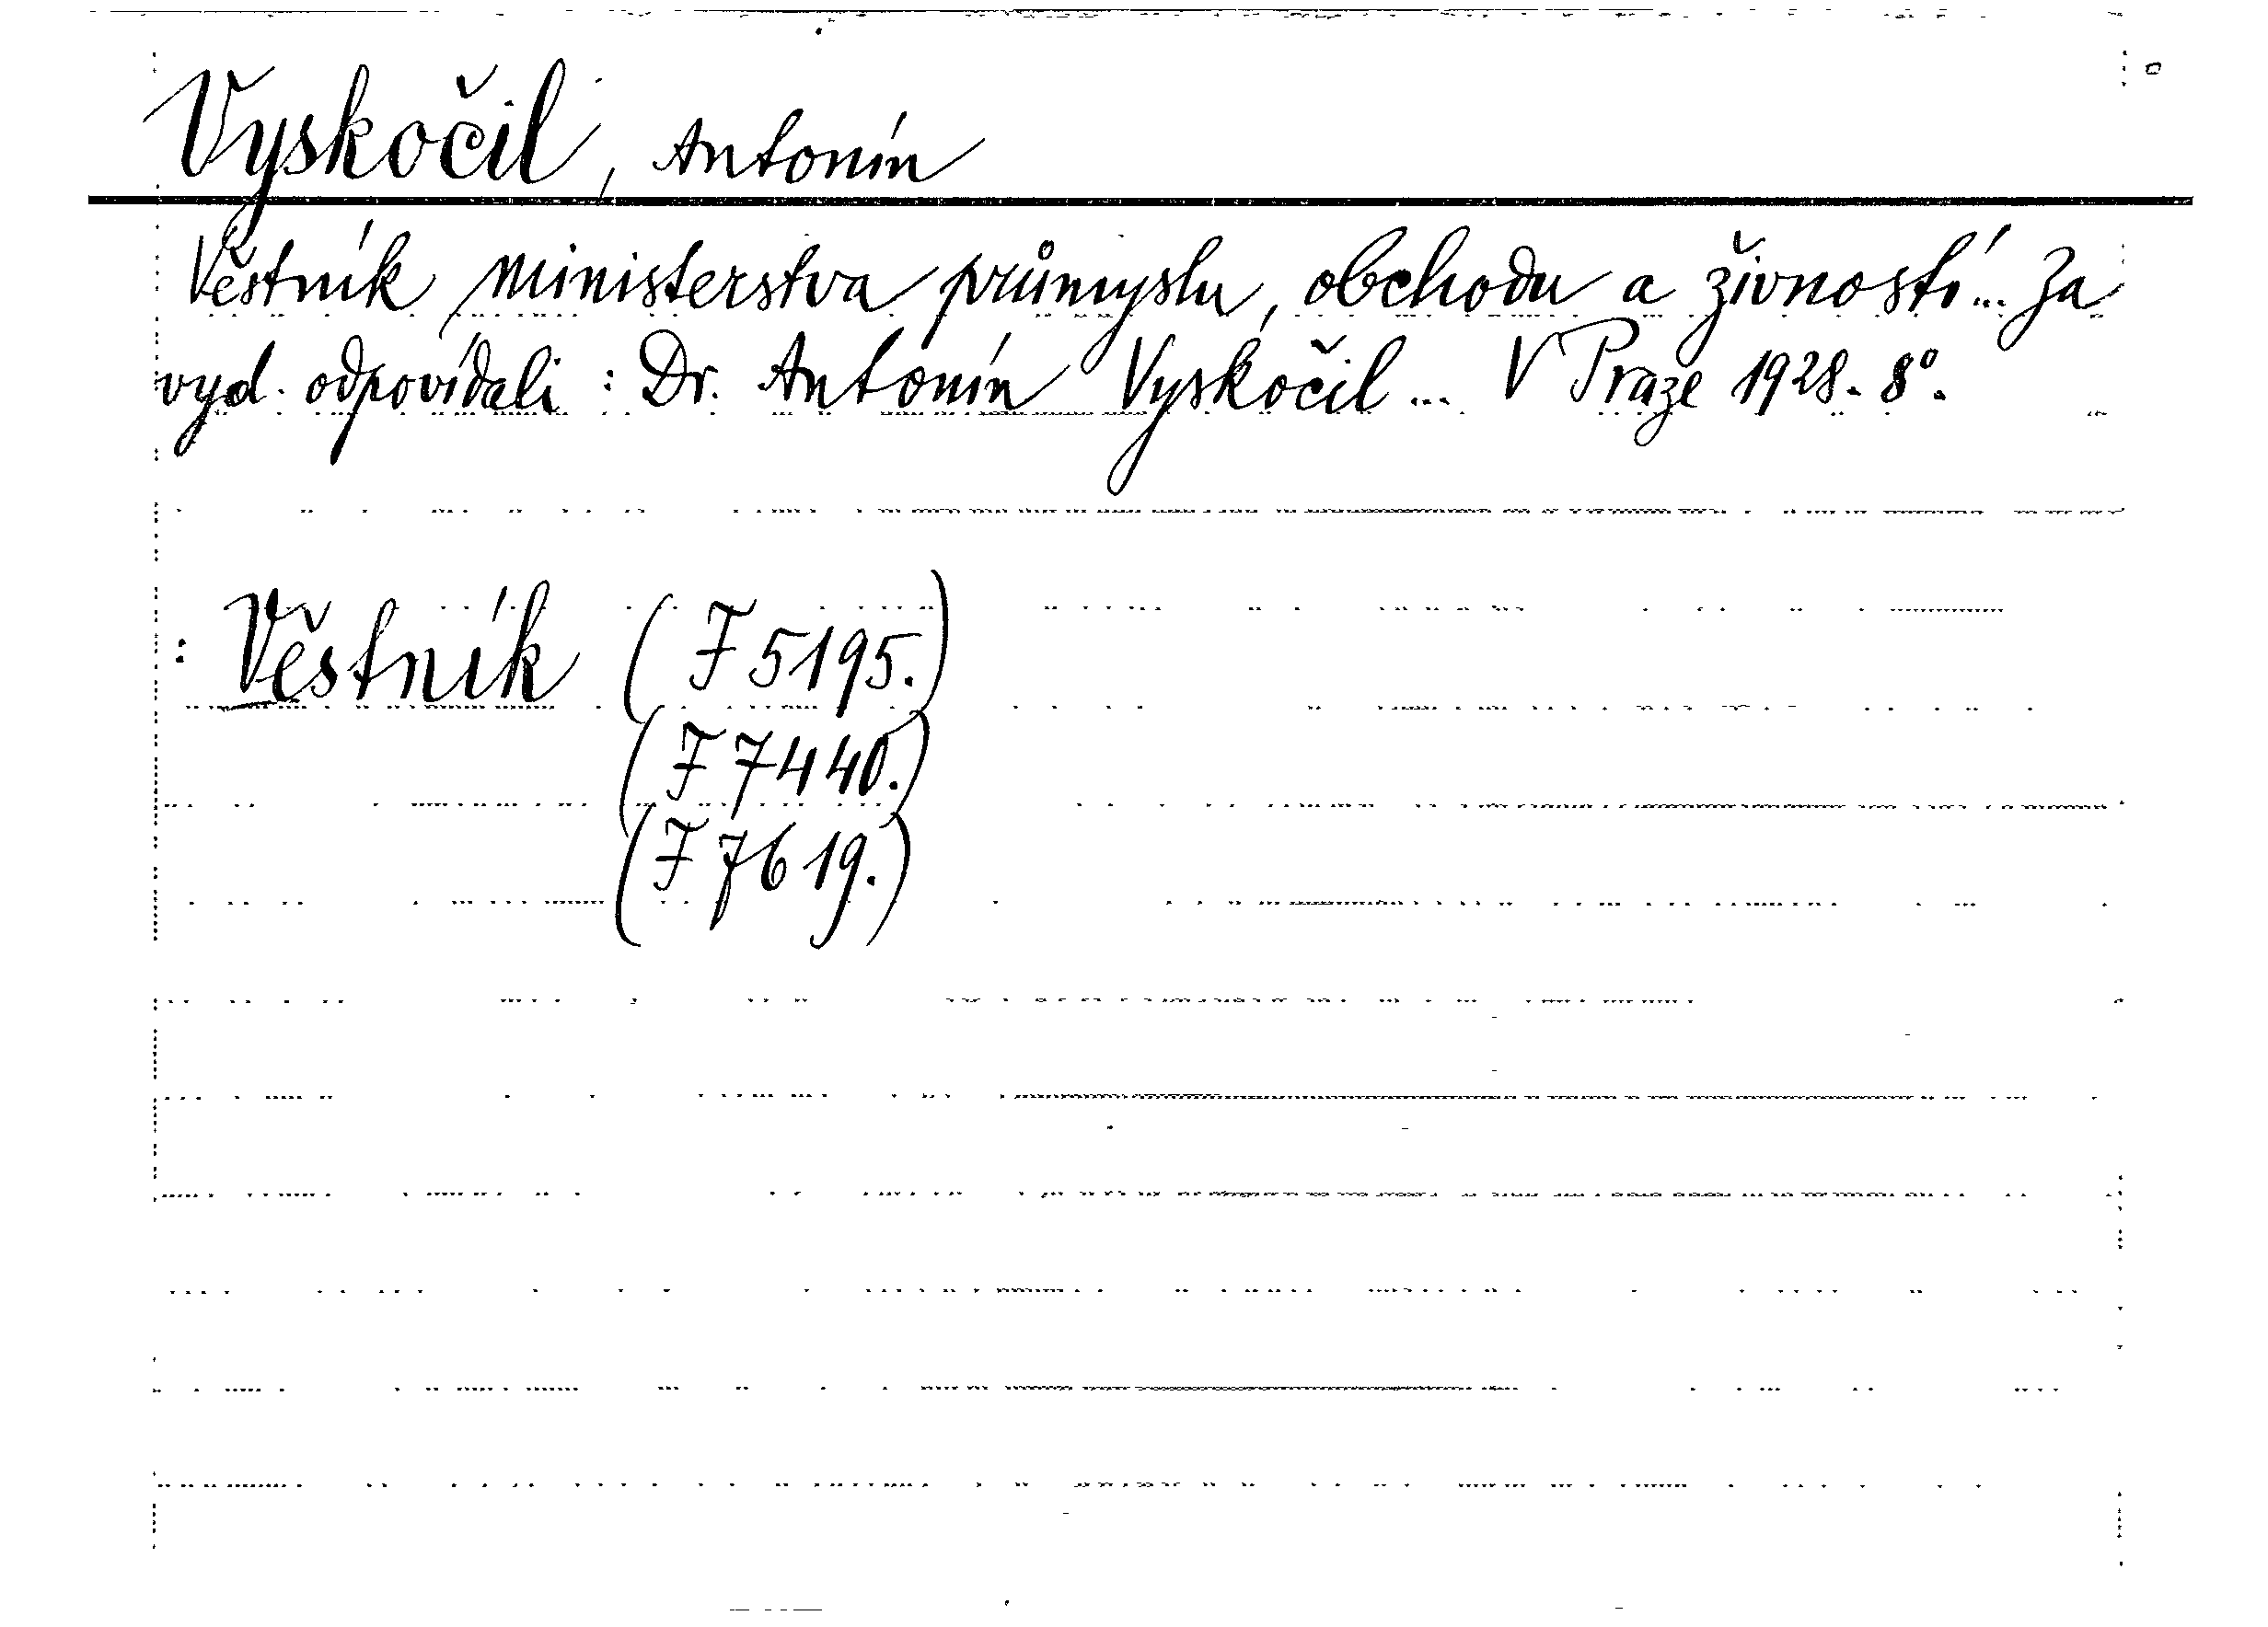 Vyskočil, Antonín
Věstník ministerstva průmyslu, obchodu a živností... Za
vyd. odpovídali: Dr. Antonín Vyskočil... V Praze 1928. 8°.
: Věstník (F 5195.)
(F 7440.)
(F 7619.)